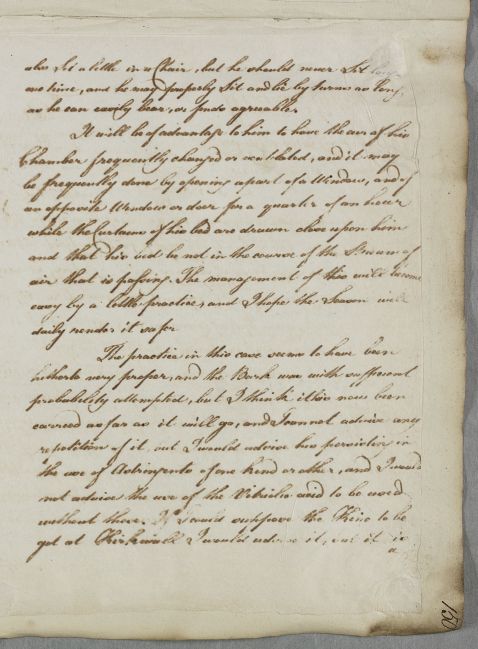 also Sit a little in a Chair, but he should never Sit long
one time, and he may properly Sit and lie by turns as long,
as he can easily bear, or finds agreeable.
It will be of advantage to him to have the air of his
Chamber frequently changed or ventilated, and it may
be frequently done by opening a part of a Window, and of
an opposite Window or door for a quarter of an hour
while the Curtains of his bed are drawn close upon him
and that his bed be not in the course of the Stream of
air that is passing. The management of this will become
easy by a little practice, and I hope the Season will
daily render it safer
The practice in this case seems to have been
hitherto very proper, and the Bark was with sufficient
probability attempted, but I think it has now been
carried as far as it will go, and I cannot advise any
repetition of it, but I would advise his persisting in
the use of Astringents of one kind or other, and I would
not advise the use of the Vitriolic acid to be used
without these. If I could suppose the Kino to be
got at Kirkwall I would advise it, but it is
a
150